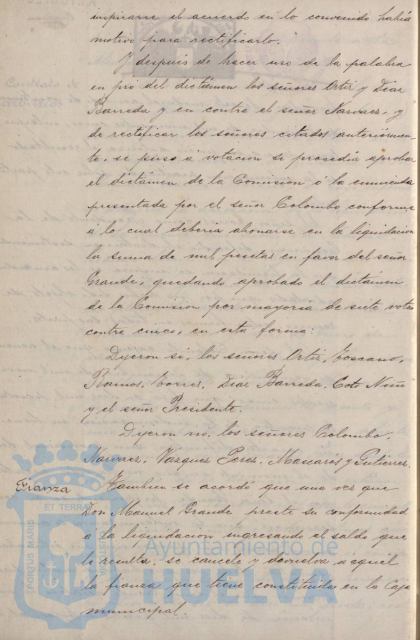 inspirarse el acuerdo en lo convenido había
motivo para rectificarlo.
Y después de hacer uso de la palabra
en pró del dictámen los señores Ortiz y Diaz
Barreda y en contra el señor Narvaez, y
de rectificar los señores citados anteriormen-
te, se puso á votación si procedía aprobar
el dictámen de la Comisión ó la enmienda
presentada por el señor Colombo conforme
á lo cual debería abonarse en la liquidación
la suma de mil pesetas en favor del señor
Grande, quedando aprobado el dictámen
de la Comisión por mayoría de siete votos
contra cinco, en esta forma:
Dijeron sí, los señores Ortiz, Toscano,
Ramos, Torres, Diaz Barreda, Coto Niño
y el señor Presidente.
Dijeron no, los señores Colombo,
Narvaez, Vazquez Perez, Mascarós y Gutierrez.
Fianza
Tambien se acordó que una vez que
Don Manuel Grande preste su conformidad
á la liquidación ingresando el saldo que
le resulta, se cancele y devuelva á aquel
la fianza que tiene constituida en la Caja
municipal
PORTUS MARIS
ET TERRAE
Ayuntamiento de
HUELVA